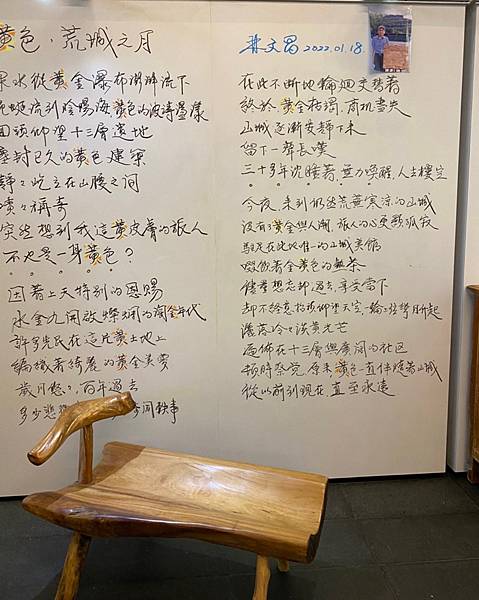 黃色．荒城之月
林文昌 2022.01.18
水從黃金瀑布潺潺流下
蜿蜒流到陰陽海黃色的波濤盪漾
回頭仰望十三層遺地
塵封已久的黃色建築
靜々屹立在山腰之間
嘖々稱奇
突然想到我這黃皮膚的旅人
不也是一身黃色？
因著上天特別的恩賜
水金九開啟輝煌的淘金年代
許多先民在這片黃土地上
編織著綺麗的黃金美夢
歲月悠々，百年過去
多少悲 間軼事
在此不斷地輪迴交替著
終於黃金枯竭，商機盡失
山城逐漸安靜下來
留下一聲長嘆
三十多年沈睡著無力喚醒，人去樓空
今夜，來到仍然荒蕪寒涼的山城
沒有了黃金與人潮，旅人的心更顯孤寂
駐足在此地唯一的山城美館
啜飲著金黃色的熱茶
儘量想忘却過去，享受當下
却不經意抬頭仰望天空，一輪弦彎月升起
落落冷冷淡黃光芒
遍佈在十三層與廣闊的社區
頓時察覺，原來黃色一直伴隨著山城
從以前到現在直至永遠